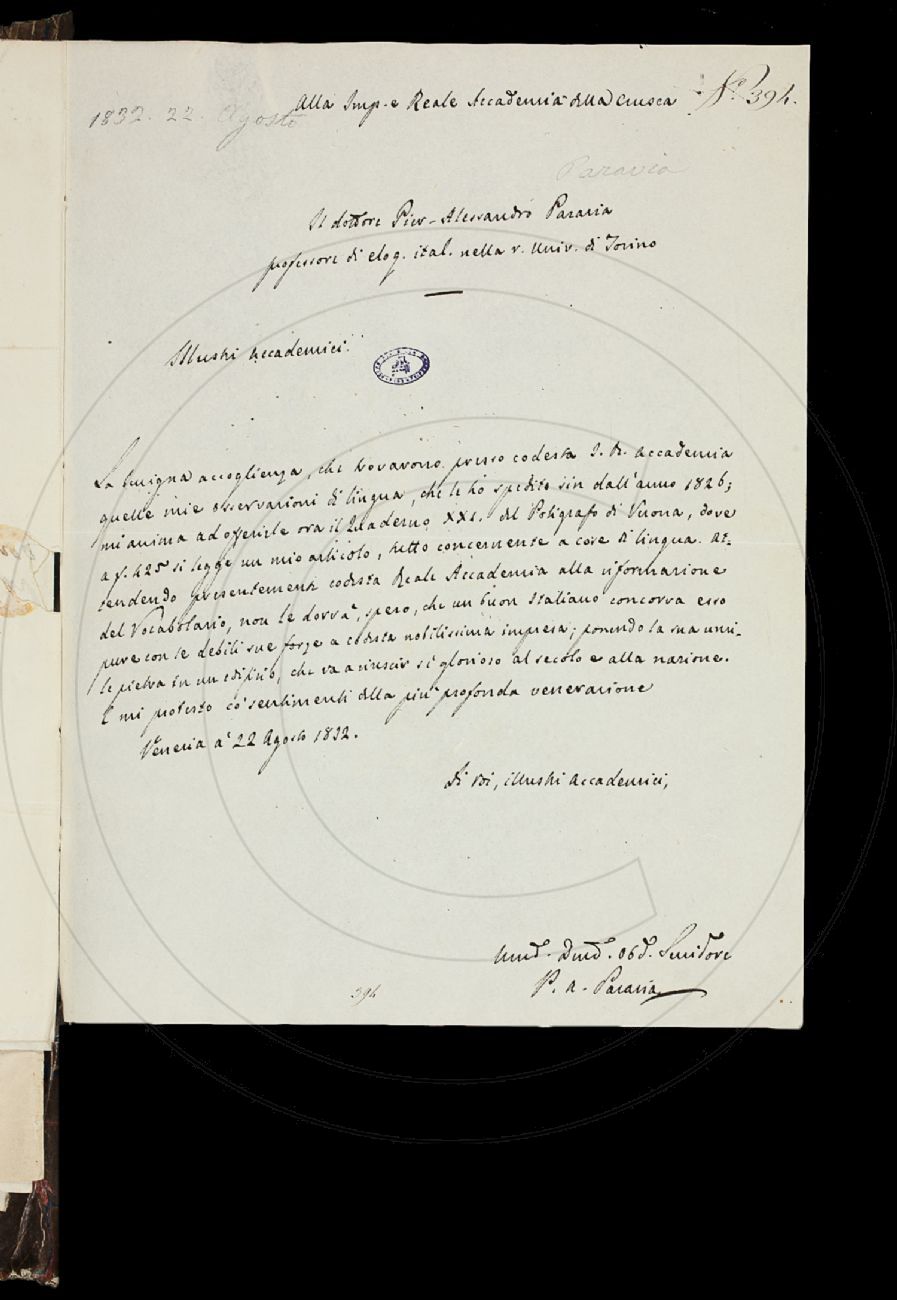 1832. 22. Agosto
Alla Imp. e Reale Accademia della Crusca
N.º 394.
Paravia
Il dottore Pier-Alessandro Paravia
professore di eloq. ital. nella r. Univ. di Torino
Illustri Accademici.
La benigna accoglienza, che trovarono presso codesta I. R. Accademia
quelle mie osservazioni di lingua, che le ho spedito sin dall'anno 1826;
mi anima ad offerirle ora il Quaderno XXI. del Poligrafo di Verona, dove
a f. 425 si legge un mio articolo, tutto concernente a cose di lingua. At-
tendendo presentemente codesta Reale Accademia alla riformazione
del Vocabolario, non le dorrà, spero, che un buon Italiano concorra esso
pure con le debili sue forze a codesta nobilissima impresa; ponendo la sua umi-
le pietra in un edifizio, che va a riuscir sì glorioso al secolo e alla nazione.
E mi protesto co' sentimenti della più profonda venerazione
Venezia a' 22 Agosto 1832.
Di Voi, illustri Accademici,
Umᵒ. Devᵒ. Obᵒ. Servidore
P. A. Paravia
394